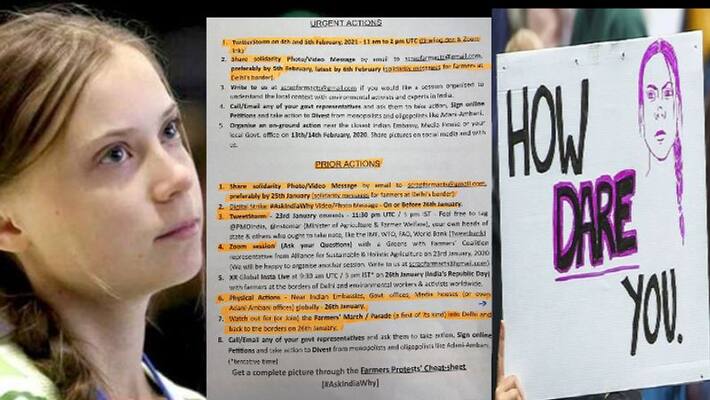 URGENT ACTIONS
1. TwitterStorm on 4th and 5th February, 2021 - 11 am to 2 pm UTC
2. Share solidarity Photo/Video Message by email to scrapfarmacts@gmail.com,
preferably by 5th February, latest by 6th February (solidarity messages for farmers at
Delhi's border).
3. Write to us at scrapfarmacts@gmail.com if you would like a session organised to
understand the local context with environmental activists and experts in India.
4. Call/Email any of your govt representatives and ask them to take action, Sign online
Petitions and take action to Divest from monopolists and oligopolists like Adani-Ambani.
5. Organise an on-ground action near the closest Indian Embassy, Media House or your
local Govt. office on 13th/14th February, 2020. Share pictures on social media and with
us.
PRIOR ACTIONS
1. Share solidarity Photo/Video Message by email to scrapfarmacts@gmail.com,
preferably by 25th January (solidarity messages for farmers at Delhi's border).
2. Digital Strike: #AskIndiaWhy Video/Photo Message - On or Before 26th January.
3. TweetStorm - 23rd January onwards - 11:30 pm UTC / 5 pm IST - Feel free to tag
@PMOIndia, @nstomar (Minister of Agriculture & Farmer Welfare), your own heads of
state & others who ought to take note, like the IMF, WTO, FAO, World Bank (Tweetbank)
4. Zoom session (Ask your Questions) with a Greens with Farmers' Coalition
representative from Alliance for Sustainable & Holistic Agriculture on 23rd January, 2020
(We will be happy to organise another session. Write to us at scrapfarmacts@gmail.com)
5. XR Global Insta Live at IST* on 26th January (India's Republic Day)
with farmers at the borders of Delhi and environmental workers & activists worldwide.
6. Physical Actions - Near Indian Embassies, Govt offices, Media houses (or even
Adani Ambani offices) globally - 26th January.
7. Watch out for (or Join) the Farmers' March / Parade (a first of its kind) into Delhi and
back to the borders on 26th January.
8. Call/Email any of your govt representatives and ask them to take action, Sign online
Petitions and take action to Divest from monopolists and oligopolists like Adani-Ambani.
(*tentative time)
Get a complete picture through the Farmers Protests' Cheat-sheet
[#AskIndiaWhy]
HOW
DARE
YOU.